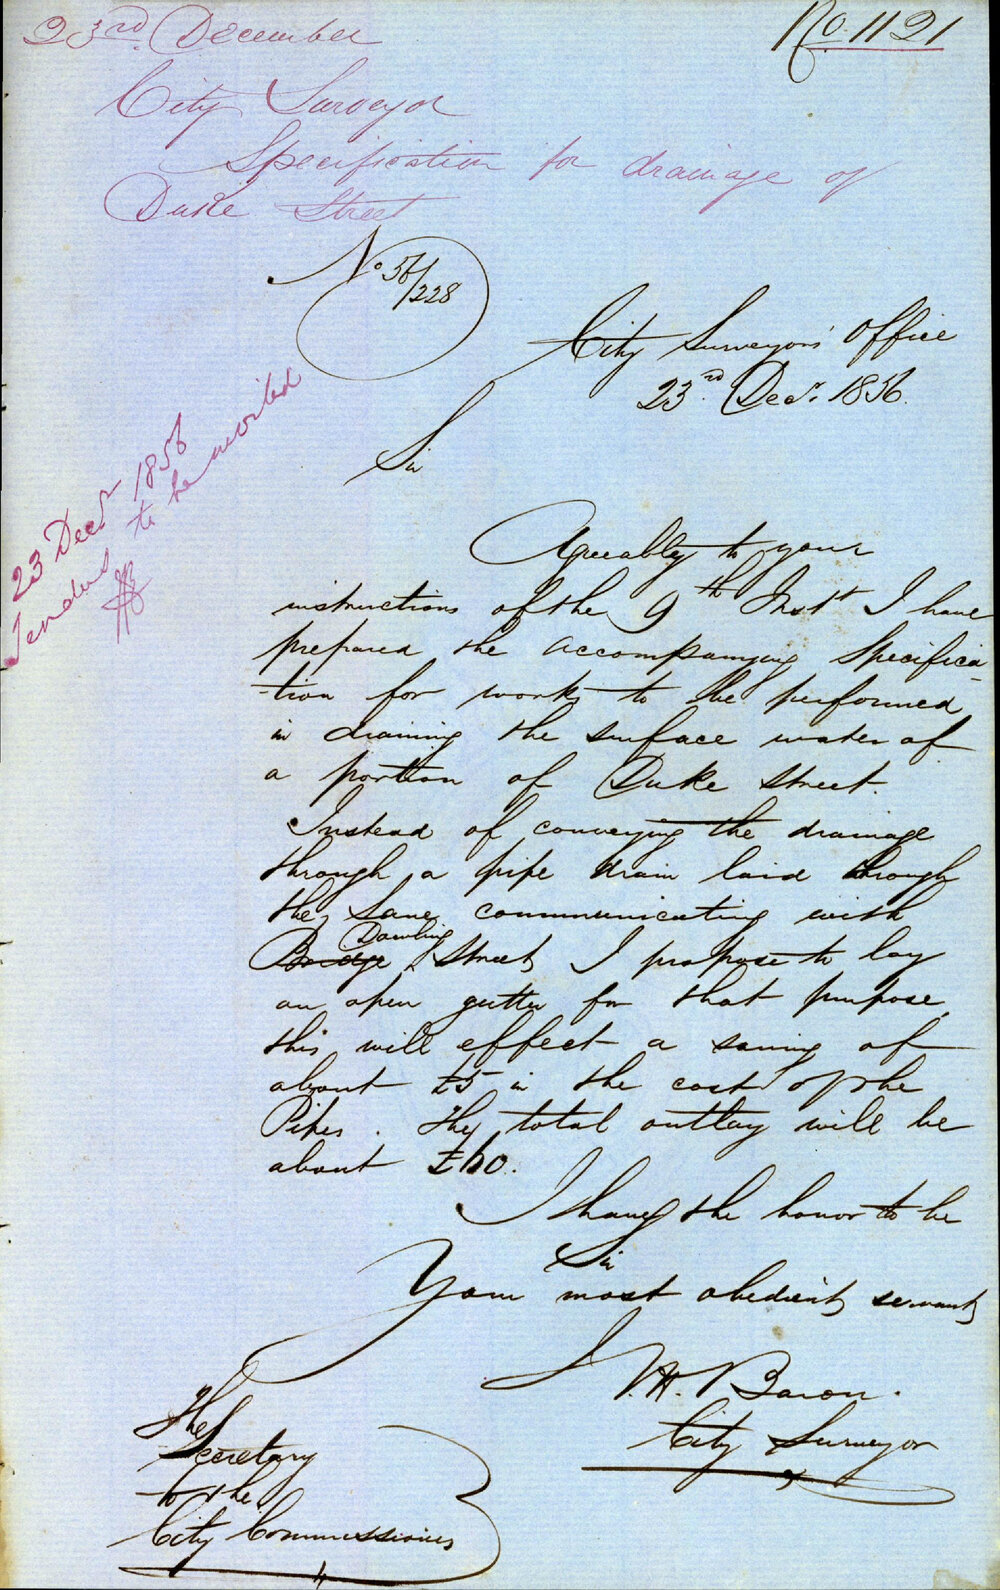 23rd. December
No. 1121
City Surveyor
Specification for drainage of
Duke Street
No 56/228
City Surveyors' Office
23rd. Decr. 1856.
23 Decr 1856
Tenders to be invited
Sir
Agreeably to your
instructions of the 9th Instt I have
prepared the accompanying Specifica
-tion for works to be performed
in draining the surface water of
a portion of Duke Street.
Instead of conveying the drainage
through a pipe drain laid through
the Lane communicating with
Bridge Dowling Street I propose to lay
an open gutter for that purpose,
this will effect a saving of
about £5 in the cost of the
Pipes. The total outlay will be
about £60.
I have the honor to be
Sir
Your most obedient servant
Baron.
City Surveyor
The
Secretary
to the
City Commissioners